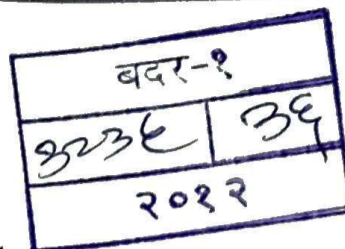 बदर-१
३२३६ ३६
२०१२